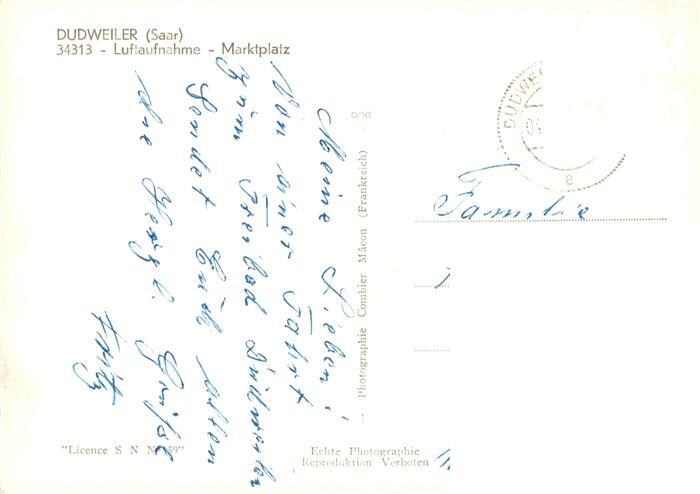 DUDWEILER (Saar)
34313 - Luftaufnahme - Marktplatz
Meine Lieben!
Von einer Fahrt
zum Freibad Dudweiler
sendet Euch allen
die Herzl. Grüße
Fritz
— Photographie Combier Mâcon (Frankreich) —
DUDWE
e
Familie
"Licence S N N 59"
Echte Photographie
Reproduktion Verboten